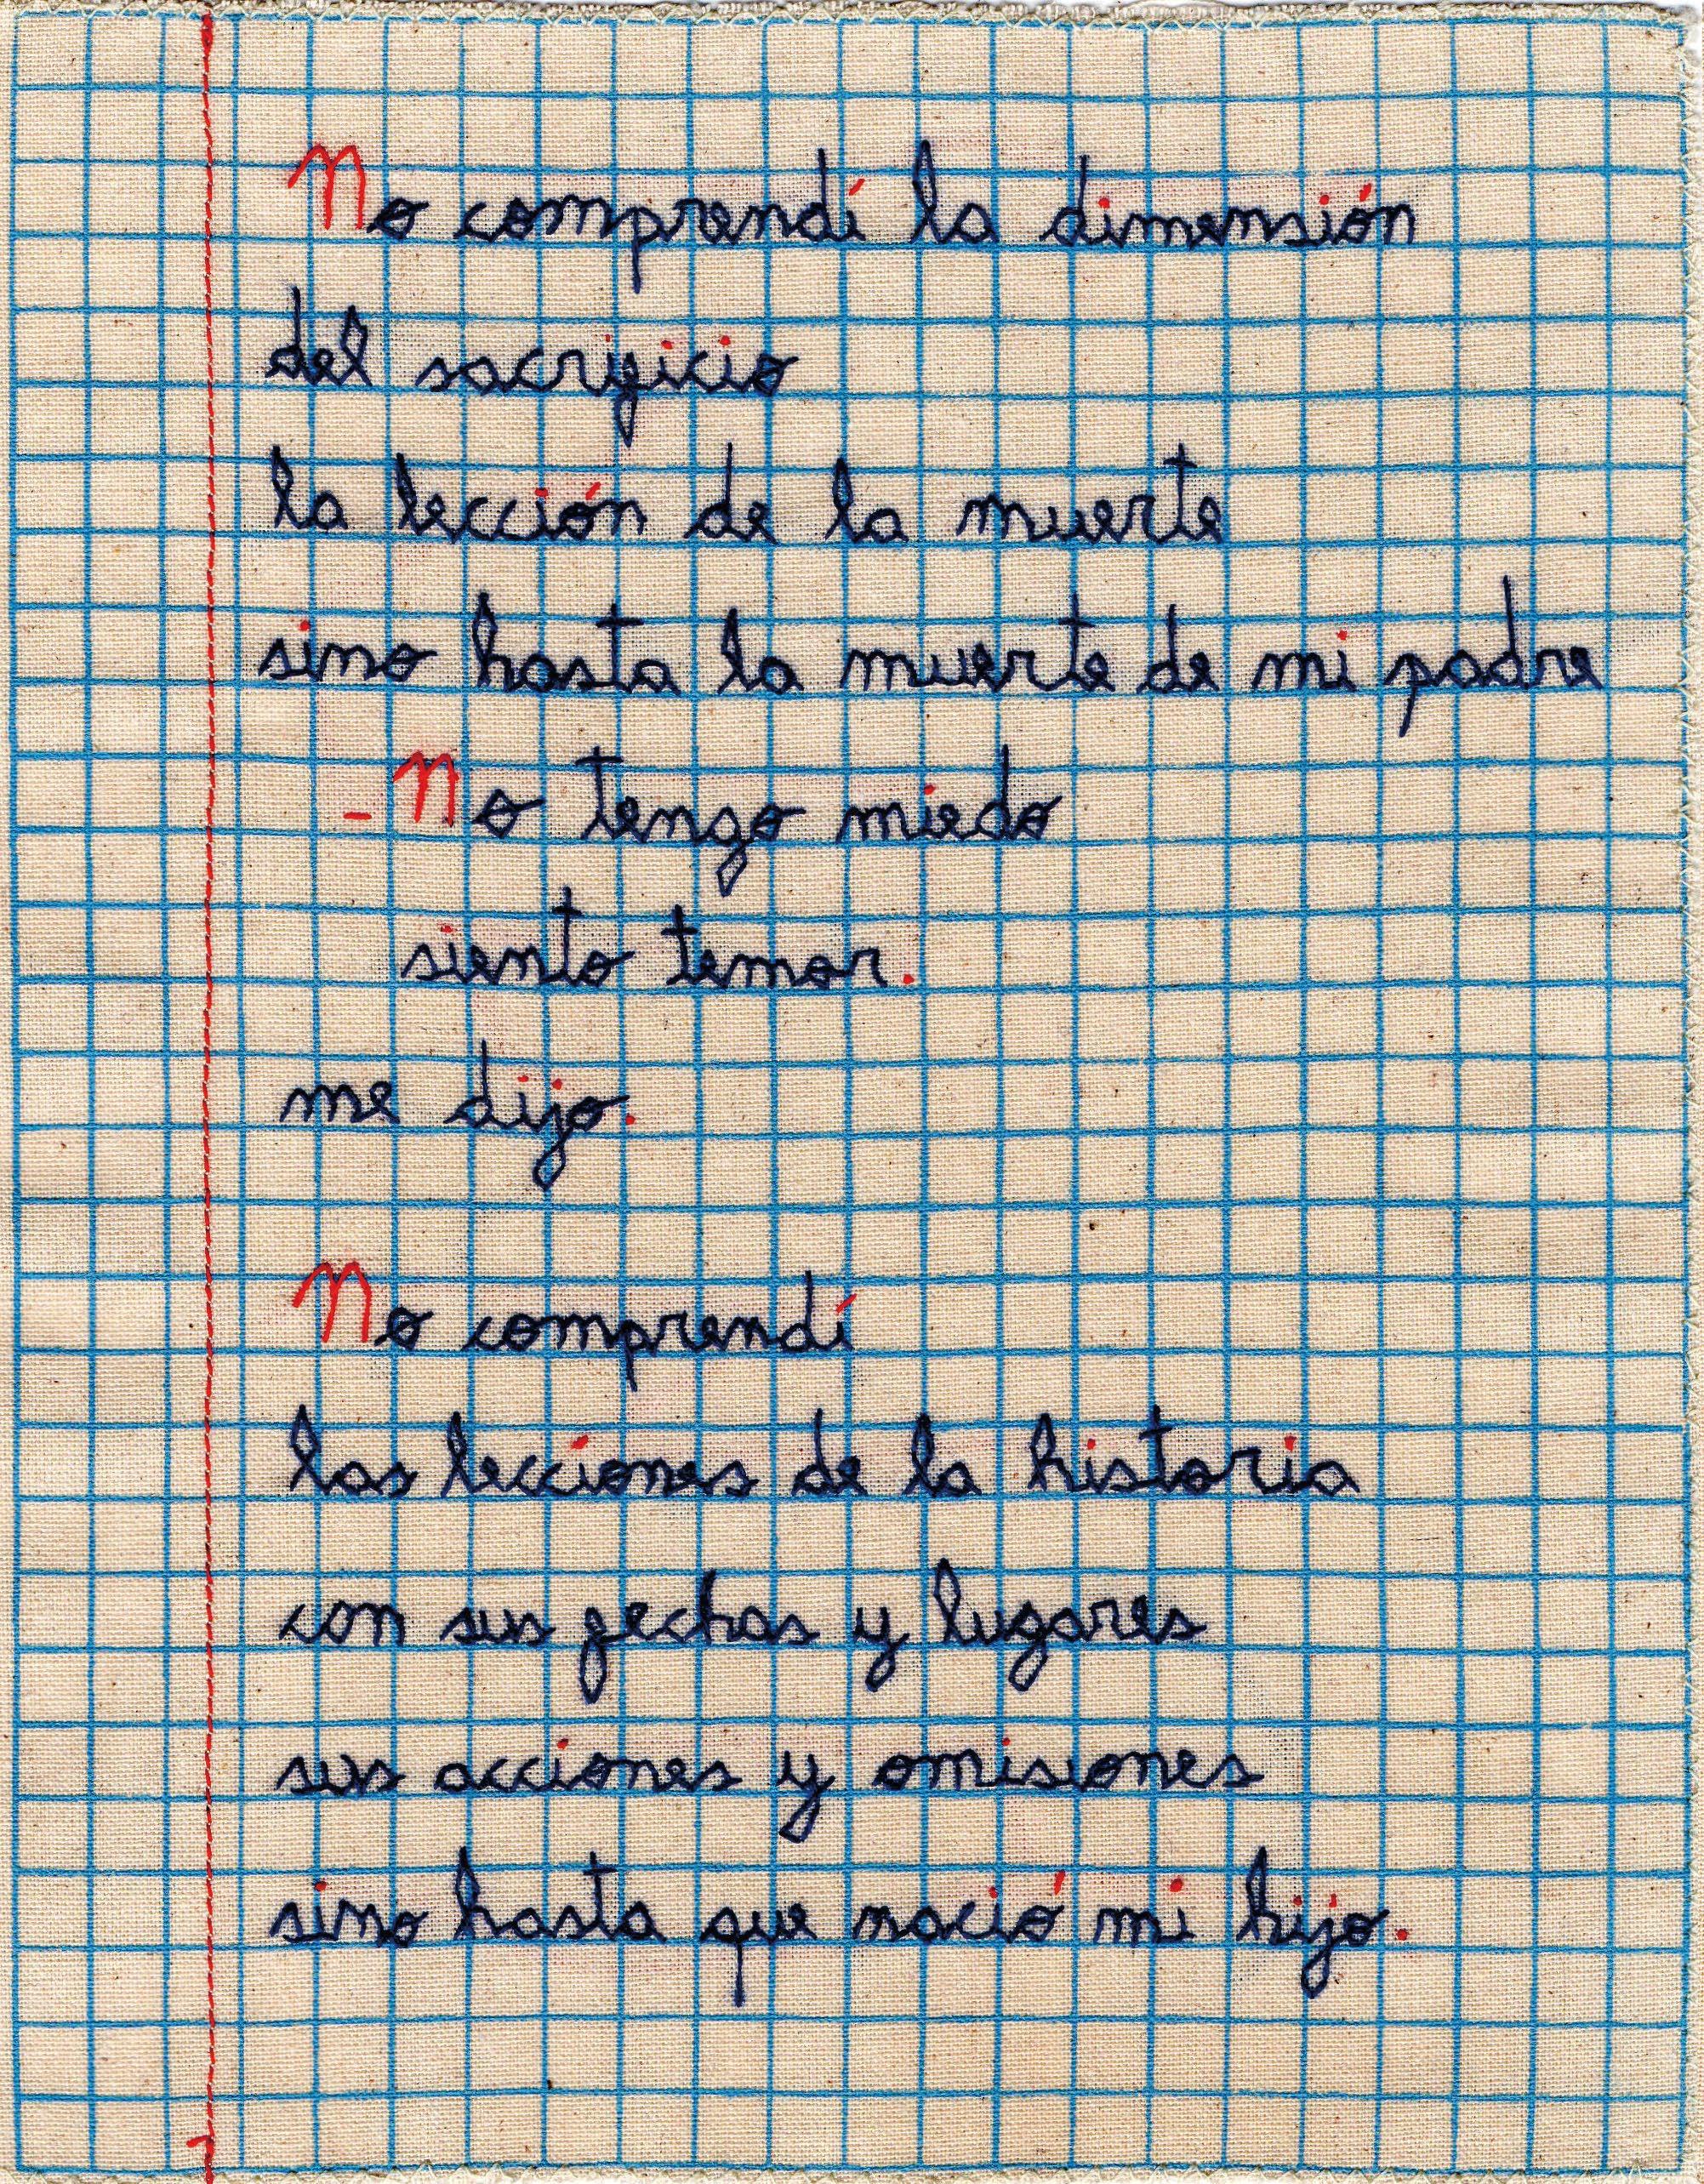 No comprendí la dimensión
del sacrificio
la lección de la muerte
sino hasta la muerte de mi padre
-No tengo miedo
siento temor.
me dijo.
No comprendí
las lecciones de la historia
con sus fechas y lugares
sus acciones y omisiones
sino hasta que nació mi hijo.